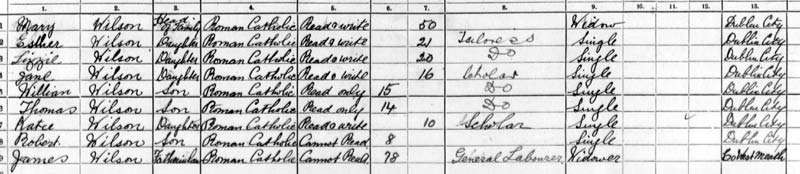 1. 2. 3. 4. 5. 6. 7. 8. 9. 10. 11. 12. 13.
1 Mary Wilson Head of Family Roman Catholic Read & write 50 Widow Dublin City
2 Esther Wilson Daughter Roman Catholic Read & write 21 Tailoress Single Dublin City
3 Lizzie Wilson Daughter Roman Catholic Read & write 20 Do Single Dublin City
4 Jane Wilson Daughter Roman Catholic Read & write 16 Scholar Single Dublin City
5 Willian Wilson Son Roman Catholic Read only 15 Do Single Dublin City
6 Thomas Wilson Son Roman Catholic Read only 14 Do Single Dublin City
7 Katie Wilson Daughter Roman Catholic Read & write 10 Scholar Single Dublin City
8 Robert Wilson Son Roman Catholic Cannot Read 8 Single Dublin City
9 James Wilson Roman Catholic Cannot Read 78 General Labourer Widower Meath